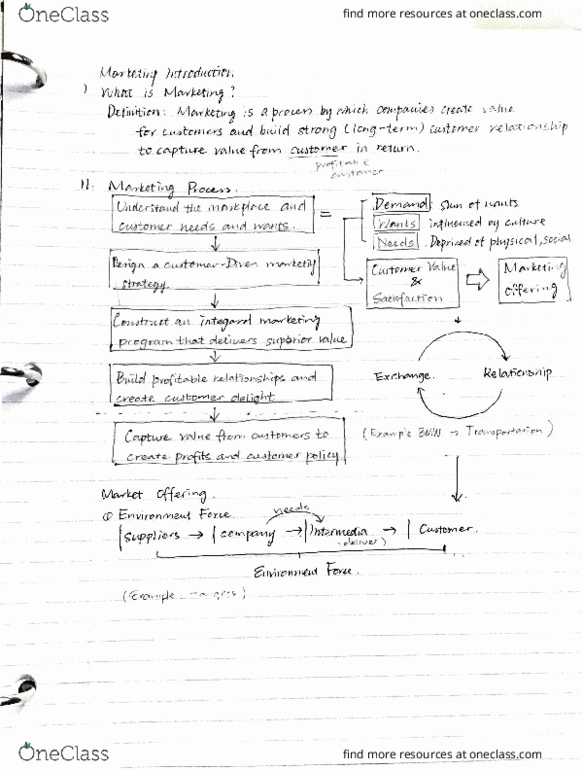 OneClass
find more resources at oneclass.com
Marketing Introduction.
I What is Marketing?
Definition: Marketing is a process by which companies create value
for customers and build strong (long-term) customer relationship
to capture value from customer in return.
profitable
customer
II. Marketing Process.
Understand the markplace and
customer needs and wants.
=
Demand: Sum of wants
Wants influenced by culture
Needs. Deprived of physical, social
Design a customer-Driven marketing
strategy.
Customer Value
&
Satisfaction
Marketing
offering
Construct an integrand marketing
program that delivers superior value
Build profitable relationships and
create customer delight
Exchange.
Relationship
Capture value from customers to
create profits and customer policy
(Example BMW → Transportation)
Market Offering.
① Environment Force.
needs
Suppliers → company → Intermedia → Customer.
(deliver)
Environment Force.
(Example
OneClass
find more resources at oneclass.com